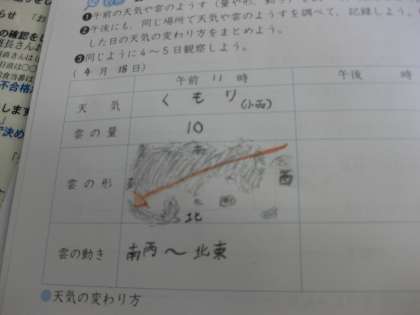 ❶午前の天気や雲のようす（量や形、動き）を
❷午後にも、同じ場所で天気や雲のようすを調べて、記録しよう。
した日の天気の変わり方をまとめよう。
❸同じように4～5日観察しよう。
（4月18日）
午前 11 時
午後 時
天気
くもり
雲の量
10
雲の形
西
北
雲の動き
南西～北東
天気の変わり方